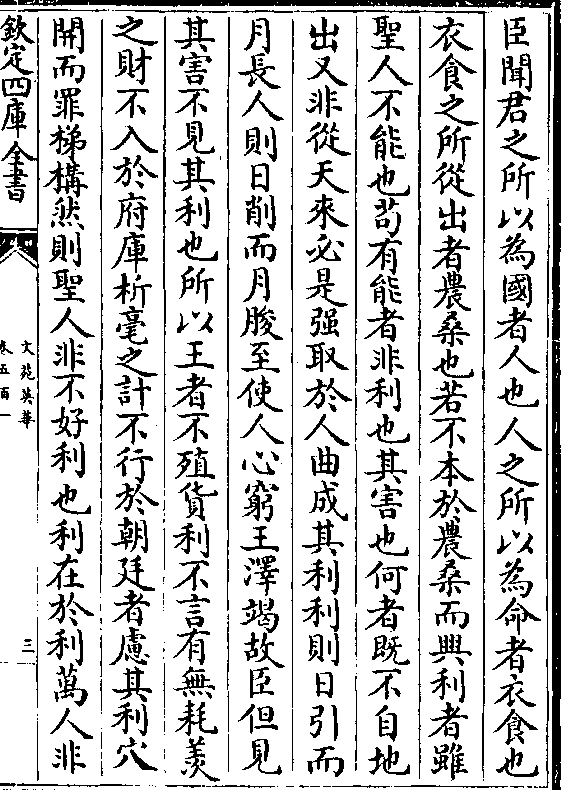 臣聞君之所以為國者人也人之所以為命者衣食也
衣食之所從出者農桑也若不本於農桑而興利者雖
聖人不能也苟有能者非利也其害也何者既不自地
出又非從天來必是强取於人曲成其利利則日引而
月長人則日削而月朘至使人心窮王澤竭故臣但見
其害不見其利也所以王者不殖貨利不言有無耗羨
之財不入於府庫析毫之計不行於朝廷者慮其利穴
開而罪梯構然則聖人非不好利也利在於利萬人非
欽定四庫全書
文苑英華
卷五百一
三